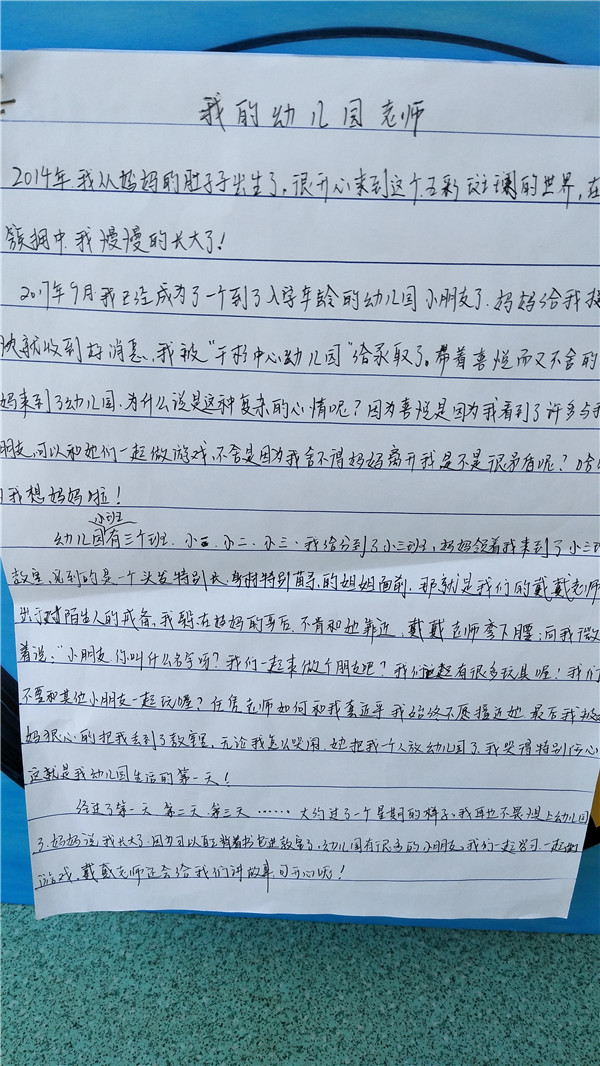 我的幼儿园老师
2014年我从妈妈的肚子子出生了,很开心来到这个五彩斑斓的世界,在
簇拥中我慢慢的长大了!
2017年9月我已经成为了一个到了入学年龄的幼儿园小朋友了.妈妈给我报
快就收到好消息,我被"干杉中心幼儿园"给录取了。带着喜悦而又不舍的
妈来到了幼儿园,为什么说是这种复杂的心情呢?因为喜悦是因为我看到了许多与我
朋友,可以和她们一起做游戏,不舍是因为我舍不得妈妈离开我是不是很矛盾呢?哈
我想妈妈啦!
小班
幼儿园有三个班.小一、小二、小三、我给分到了小三班,妈妈领着我来到了小三
教室,见到的是一个头发特别长,身材特别苗条的姐姐面前,那就是我们的戴戴老师
出于对陌生人的戒备,我躲在妈妈的身后,不肯和她靠近,戴戴老师弯下腰,向我微
着说:"小朋友你叫什么名字呀?我们一起来做个朋友吧?我们这有很多玩具喔!我们
不要和其他小朋友一起玩喔?任凭老师如何和我套近乎我始终不愿接近她.最后我被
妈狠心的把我丢到了教室里,无论我怎么哭闹,她把我一个人放幼儿园了.我哭得特别伤心
这就是我幼儿园生活的第一天!
经过了第一天 第二天.第三天……大约过了一个星期的样子,我再也不畏惧上幼儿园
了.妈妈说我长大了.因为可以自己背着书包进教室了.幼儿园有很多的小朋友,我们一起学习一起做
游戏,戴戴老师还会给我们讲故事可开心呢!